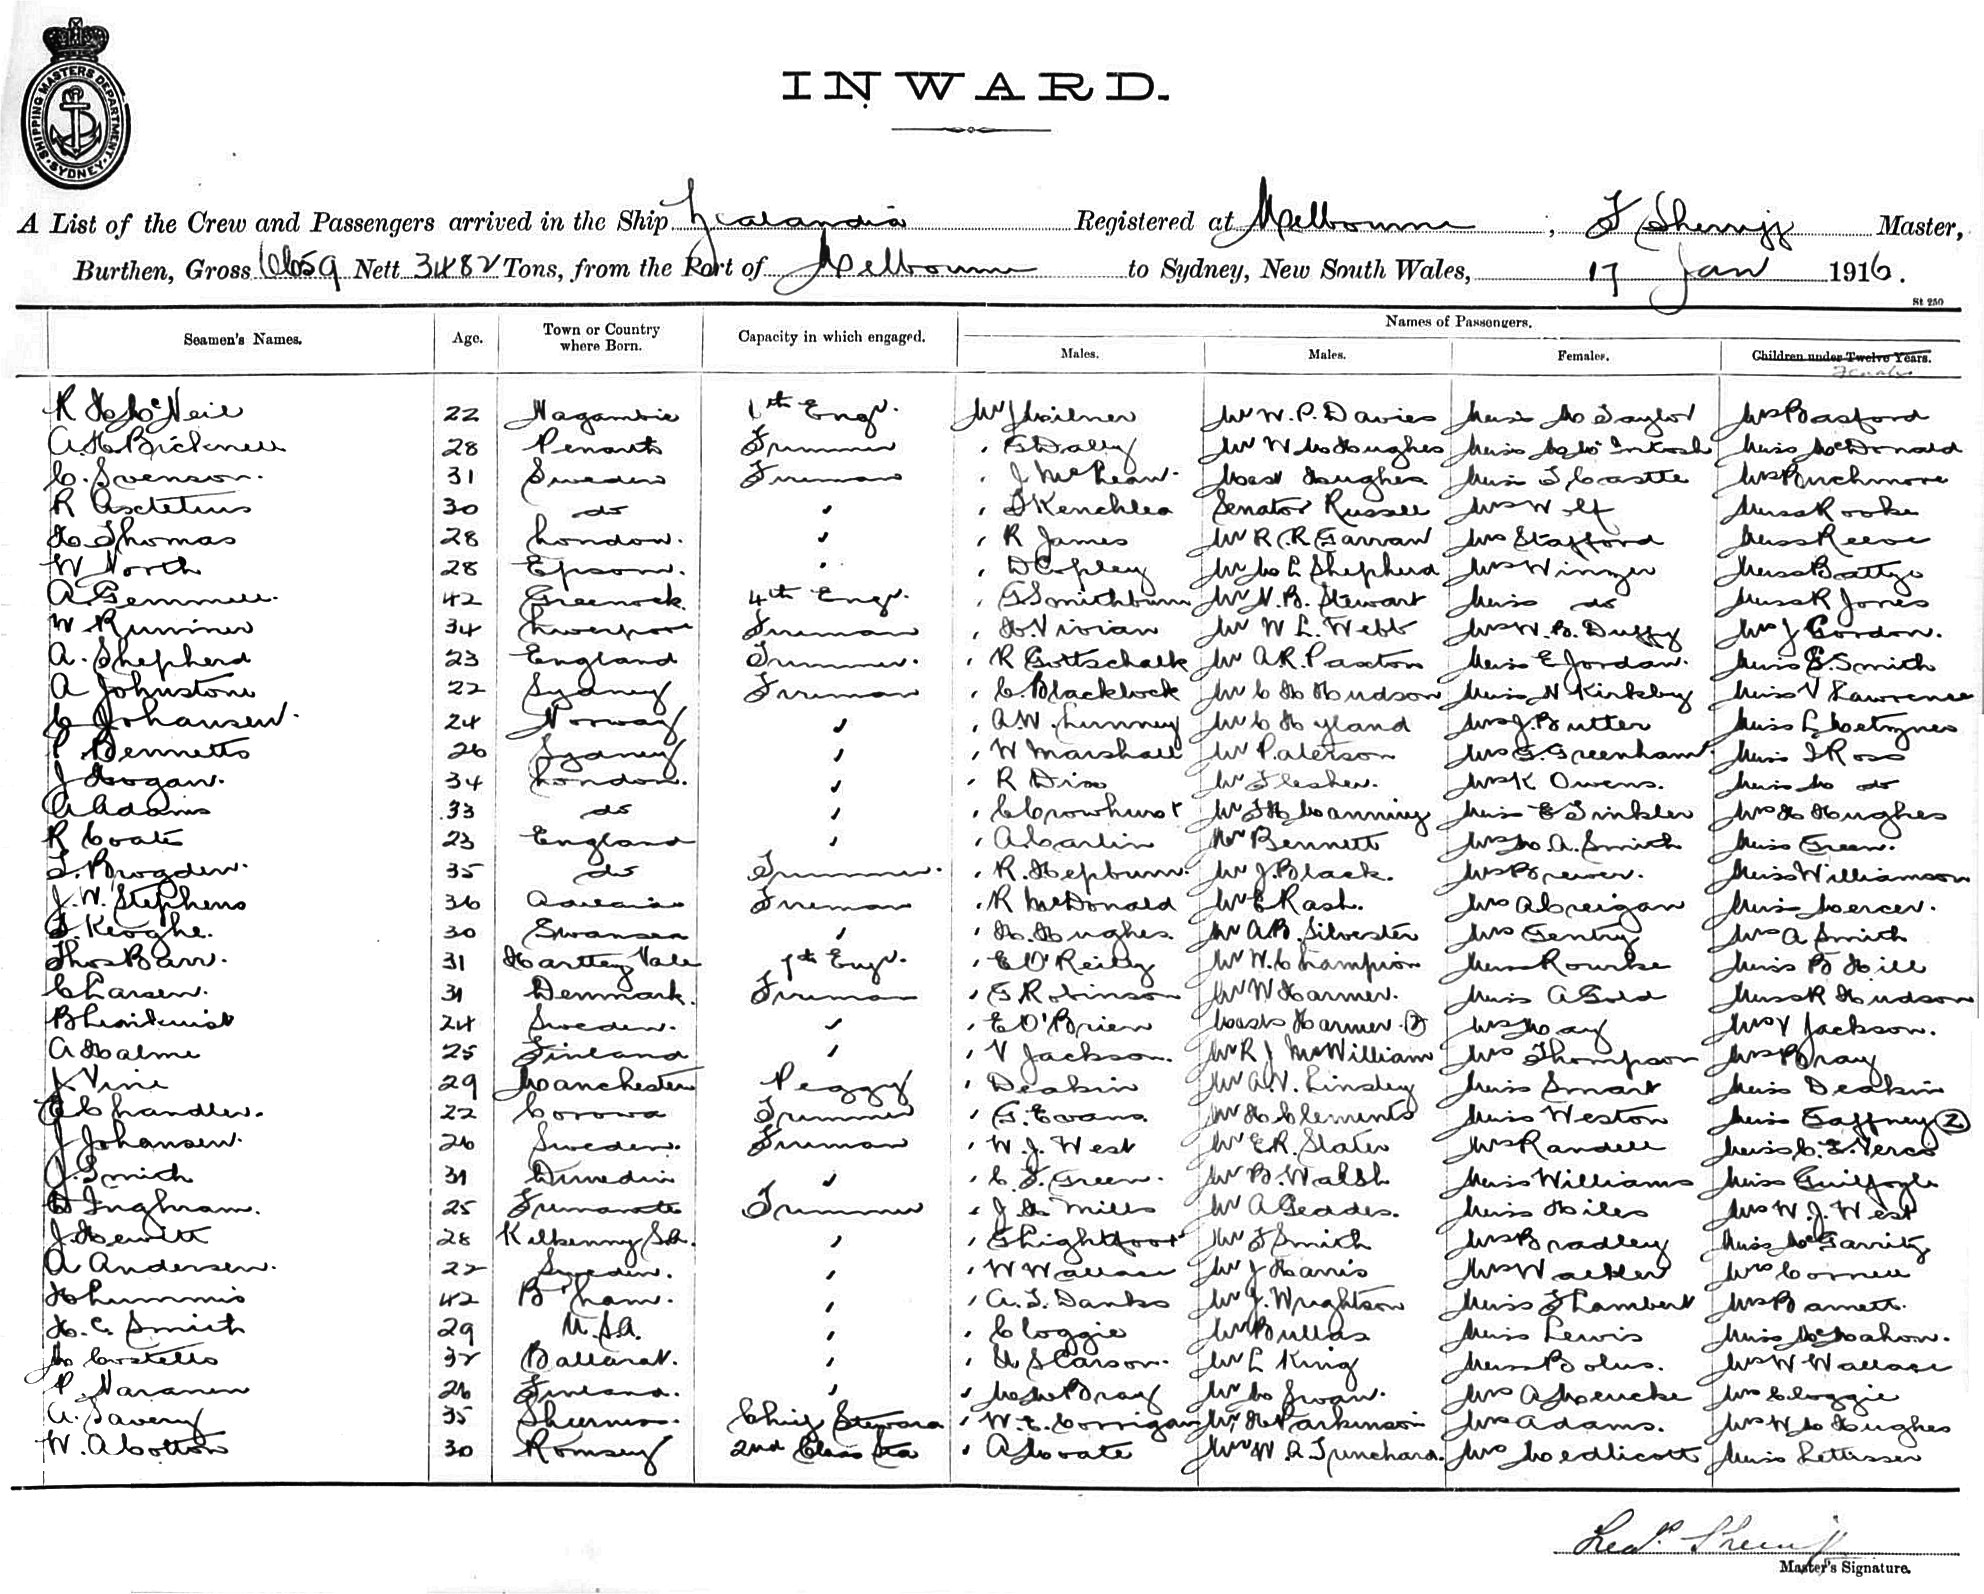 SHIPPING MASTERS DEPARTMENT SYDNEY
INWARD.
A List of the Crew and Passengers arrived in the Ship Zealandia Registered at Melbourne ; Master,
Burthen, Gross 6659 Nett 3482 Tons, from the Port of Melbourne to Sydney, New South Wales, 17 Jan 1916.
St 250
Seamen's Names. Age. Town or Country where Born. Capacity in which engaged. Names of Passengers.
Males. Males. Females. Children under Twelve Years.
R H McNeil 22 Nagambie Engr. Mr Milner Mr W. P. Davies Miss M Taylor Mrs Basford
A. H. Bicknell 28 Penarth Trimmer , G Dally Mr W M Hughes Miss M McIntosh Miss McDonald
C. Svenson. 31 Sweden Fireman , J McLean. Mast Hughes Miss T Castle Mrs Birchmore
R 30 do , , Senator Russell Mrs Wolf Miss Rooke
H. Thomas 28 London. , , R James Mr R. R. Garran Mrs Stafford Miss Reeve
W North 28 Epsom. , , D Copley Mr M L Shepherd Mrs Winzer Miss
A. Gemmell. 42 Greenock. 4th Engr. , G Smithburn Mr N. B. Stewart Miss do Miss R Jones
W 34 Liverpool Fireman , H. Vivian Mr W L. Webb Mrs W. B. Duffy Mrs J Gordon.
A. Shepherd 23 England Trimmer. , R Gottschalk Mr A. R. Paxton Miss E Jordan. Miss E. Smith
A Johnstone 22 Sydney Fireman , C. Blacklock Mr C H Hudson Miss N Kirkby Miss V Lawrence
C Johansen. 24 Norway , , A. W. Lumney Mr C Hyland Mrs J. Butter Miss L
P. Bennetts 26 Sydney , , W Marshall Mr Paterson Mrs G. Greenham Miss I Ross
J Hogan. 34 London. , , R Dix Mr Flesher. Mrs K Owens. Miss M do
A Adams 33 do , , C Crowhurst Mr F H Manning Miss E Tinkler Mrs H Hughes
R Coate 23 England , , A Carlin Mr Bennett Mrs M. A. Smith Miss Green.
T. Brogden. 35 do Trimmer. , R. Hepburn. Mr J. Black. Mrs Brewer. Miss Williamson
J. W. Stephens 36 Adelaide Fireman , R McDonald Mr E Rash. Mrs A Creigan Miss Mercer.
F. Keoghe. 30 Swansea , , H. Hughes. Mr A. B. Silvester Mrs Gentry Mrs A Smith
Thos Barr. 31 Hartley Vale 7th Engr. , E O'Reilly Mr W. Champion Miss Rourke Miss B Hill
C Larsen. 31 Denmark. Fireman , G Robinson Mr W Harmer. Miss A Gold Miss R Hudson
B 24 Sweden. , , E O'Brien Masts Harmer (2) Mrs May Mrs V Jackson.
A Halme 25 Finland , , V Jackson. Mr R J McWilliam Mrs Thompson Mrs Bray
J. Vine 29 Manchester Peggy , Deakin Mr A. V. Linsley Miss Smart Miss Deakin
E Chandler. 22 Corowa Trimmer , G. Evans. Mr H Clements Miss Weston Miss Gaffney (2)
J Johansen. 26 Sweden. Fireman , W. J. West Mr E. R. Slater Mrs Randell Miss C. F. Verco
J. Smith 31 Dunedin , , C. F. Green. Mr B. Walsh Miss Williams Miss Guilfoyle
D Inghram. 25 Fremantle Trimmer , J H Mills Mr A Geddes. Miss Hiles Mrs W. J. West
J. Hewitt 28 Kilkenny S.A. , , G Lightfoot Mr F Smith Mrs Bradley Miss McGarrity
A Andersen. 22 Sweden. , , W Wallace Mr J Harris Mrs Walker Mrs Cornell
H Lummis 42 B'ham. , , A. T. Danks Mr J. Wrightson Miss F Lambert Mrs Barnett.
H. C. Smith 29 U.S.A. , , Cloggie Mr Bullas Miss Lewis Miss McMahon.
M Costello 32 Ballarat. , , U S Carson. Mr L King Miss Bolus. Mrs W Wallace
P. Naranen 26 Finland. , , Bray Mr M Swan. Mrs A Meucke Mrs Cloggie
A. Savery 35 Chief Steward , W. C. Corrigan Mr H Parkinson Mrs Adams. Mrs W M Hughes
W. A Cotton 30 Romsey 2nd Class , A Moate Mr W. A. Trenchard. Mrs Medlicott Miss
Master's Signature.